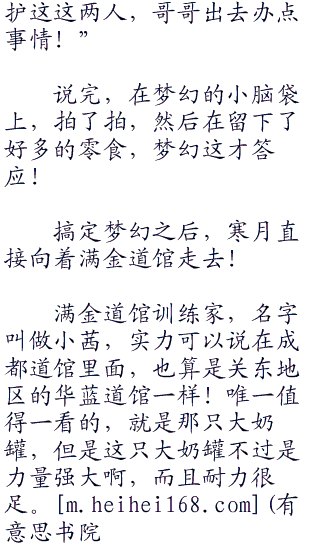 护这这两人，哥哥出去办点
事情！”
说完，在梦幻的小脑袋
上，拍了拍，然后在留下了
好多的零食，梦幻这才答
应！
搞定梦幻之后，寒月直
接向着满金道馆走去！
满金道馆训练家，名字
叫做小茜，实力可以说在成
都道馆里面，也算是关东地
区的华蓝道馆一样！唯一值
得一看的，就是那只大奶
罐，但是这只大奶罐不过是
力量强大啊，而且耐力很
足。[m.heihei168.com](有
意思书院